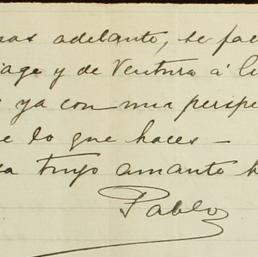 adelanto, se fa
iage y de Ventura á
ya con mea perspe
e lo que haces —
a tuyo amante h
Pablo